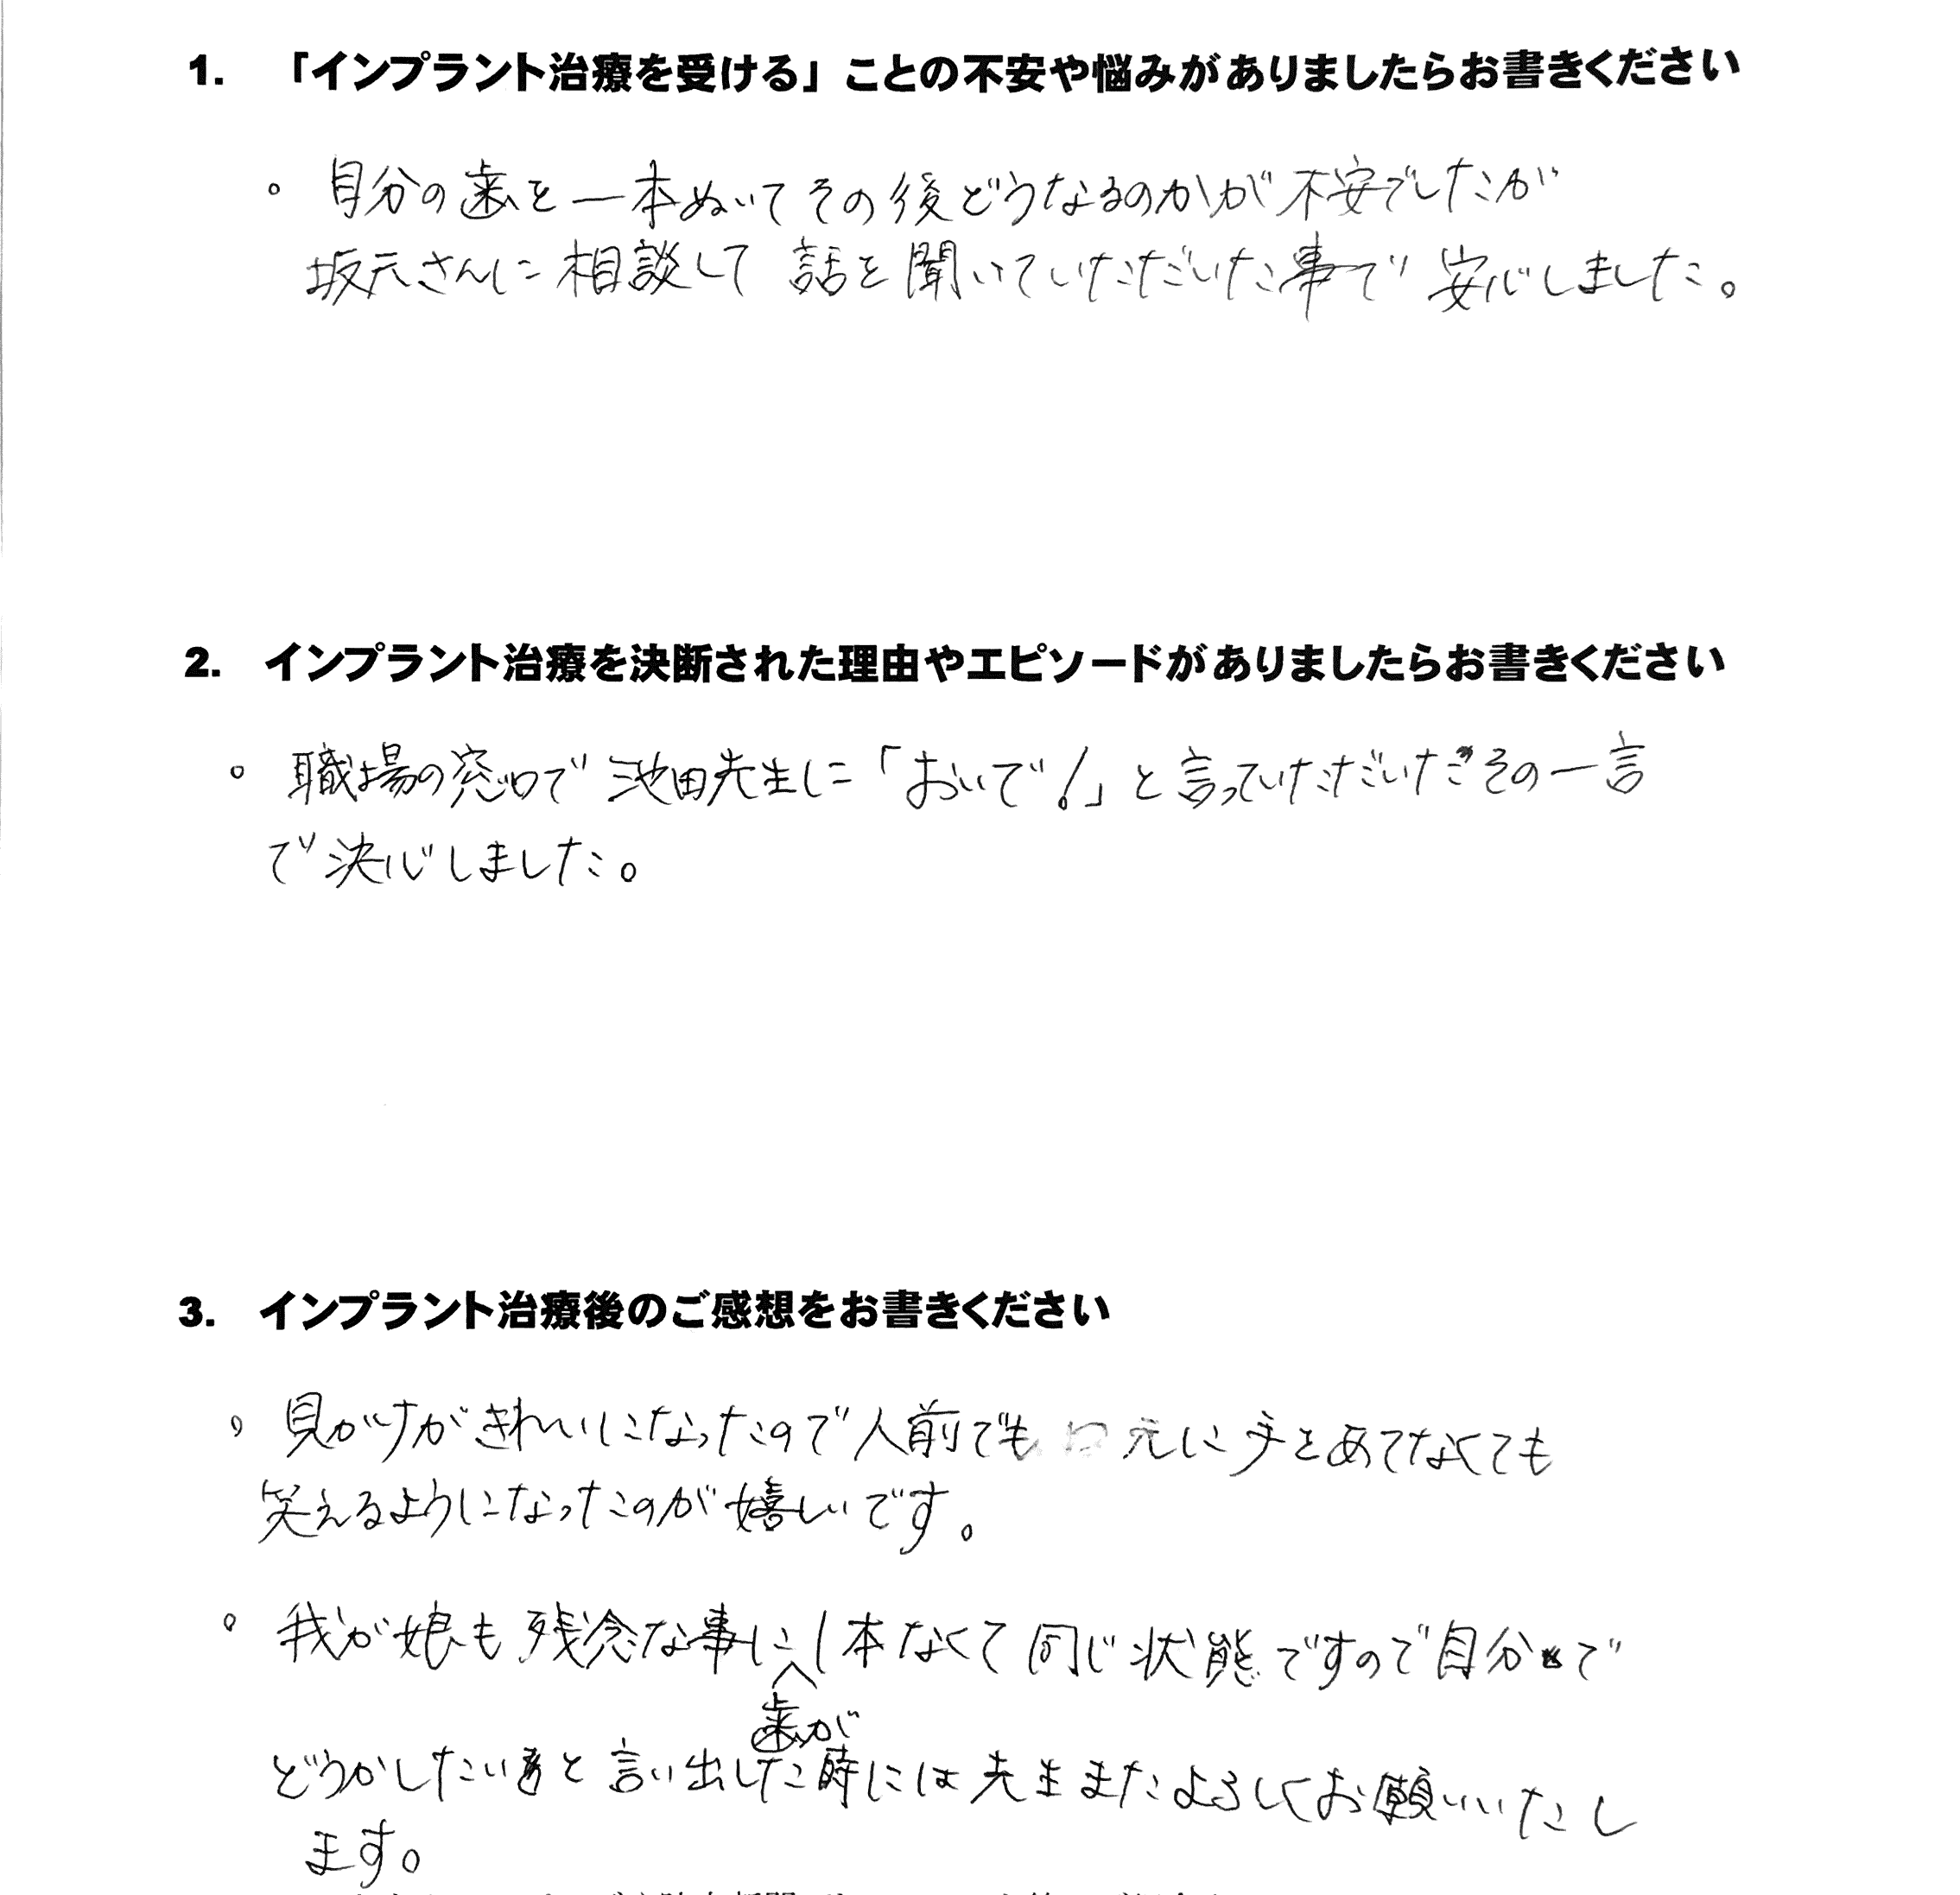 1. 「インプラント治療を受ける」ことの不安や悩みがありましたらお書きください
。自分の歯を一本ぬいてその後どうなるのかが不安でしたが
坂元さんに相談して 話を聞いていただいた事で 安心しました。
2. インプラント治療を決断された理由やエピソードがありましたらお書きください
。職場の窓口で 池田先生に「おいで!」と言っていただいたその一言
で決心しました。
3. インプラント治療後のご感想をお書きください
。見かけがきれいになったので人前でも口元に手をあてなくても
笑えるようになったのが嬉しいです。
。我が娘も残念な事に1本なくて同じ状態ですので自分で
歯が
どうかしたいと言い出した時には先生またよろしくお願いいたし
ます。